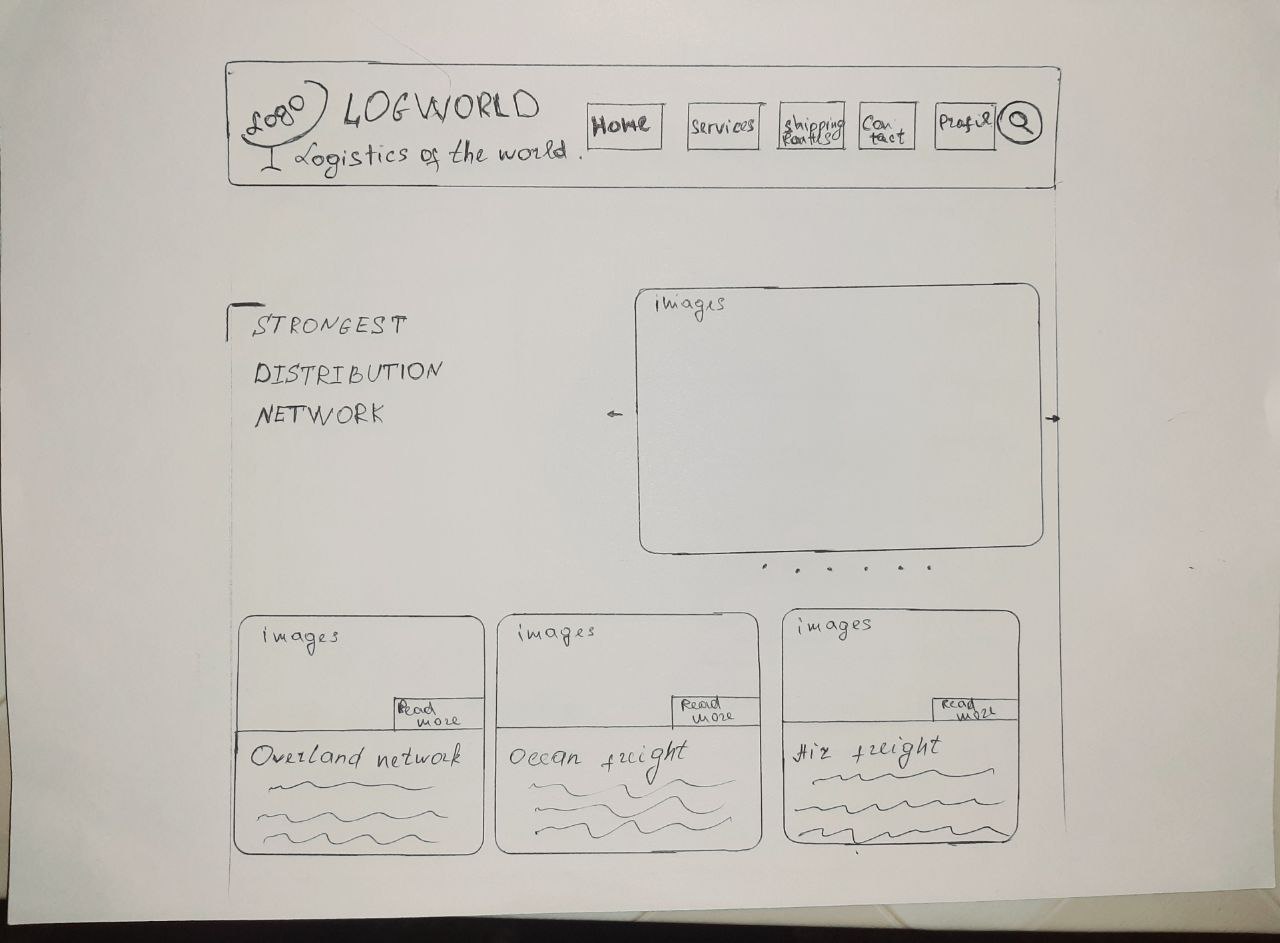 Logo
LOGWORLD
Logistics of the world.
Home
Services
Shipping
Routes
Con
tact
Profil
STRONGEST
DISTRIBUTION
NETWORK
images
images
Read
more
Overland network
images
Read
more
Ocean freight
images
Read
more
Air freight